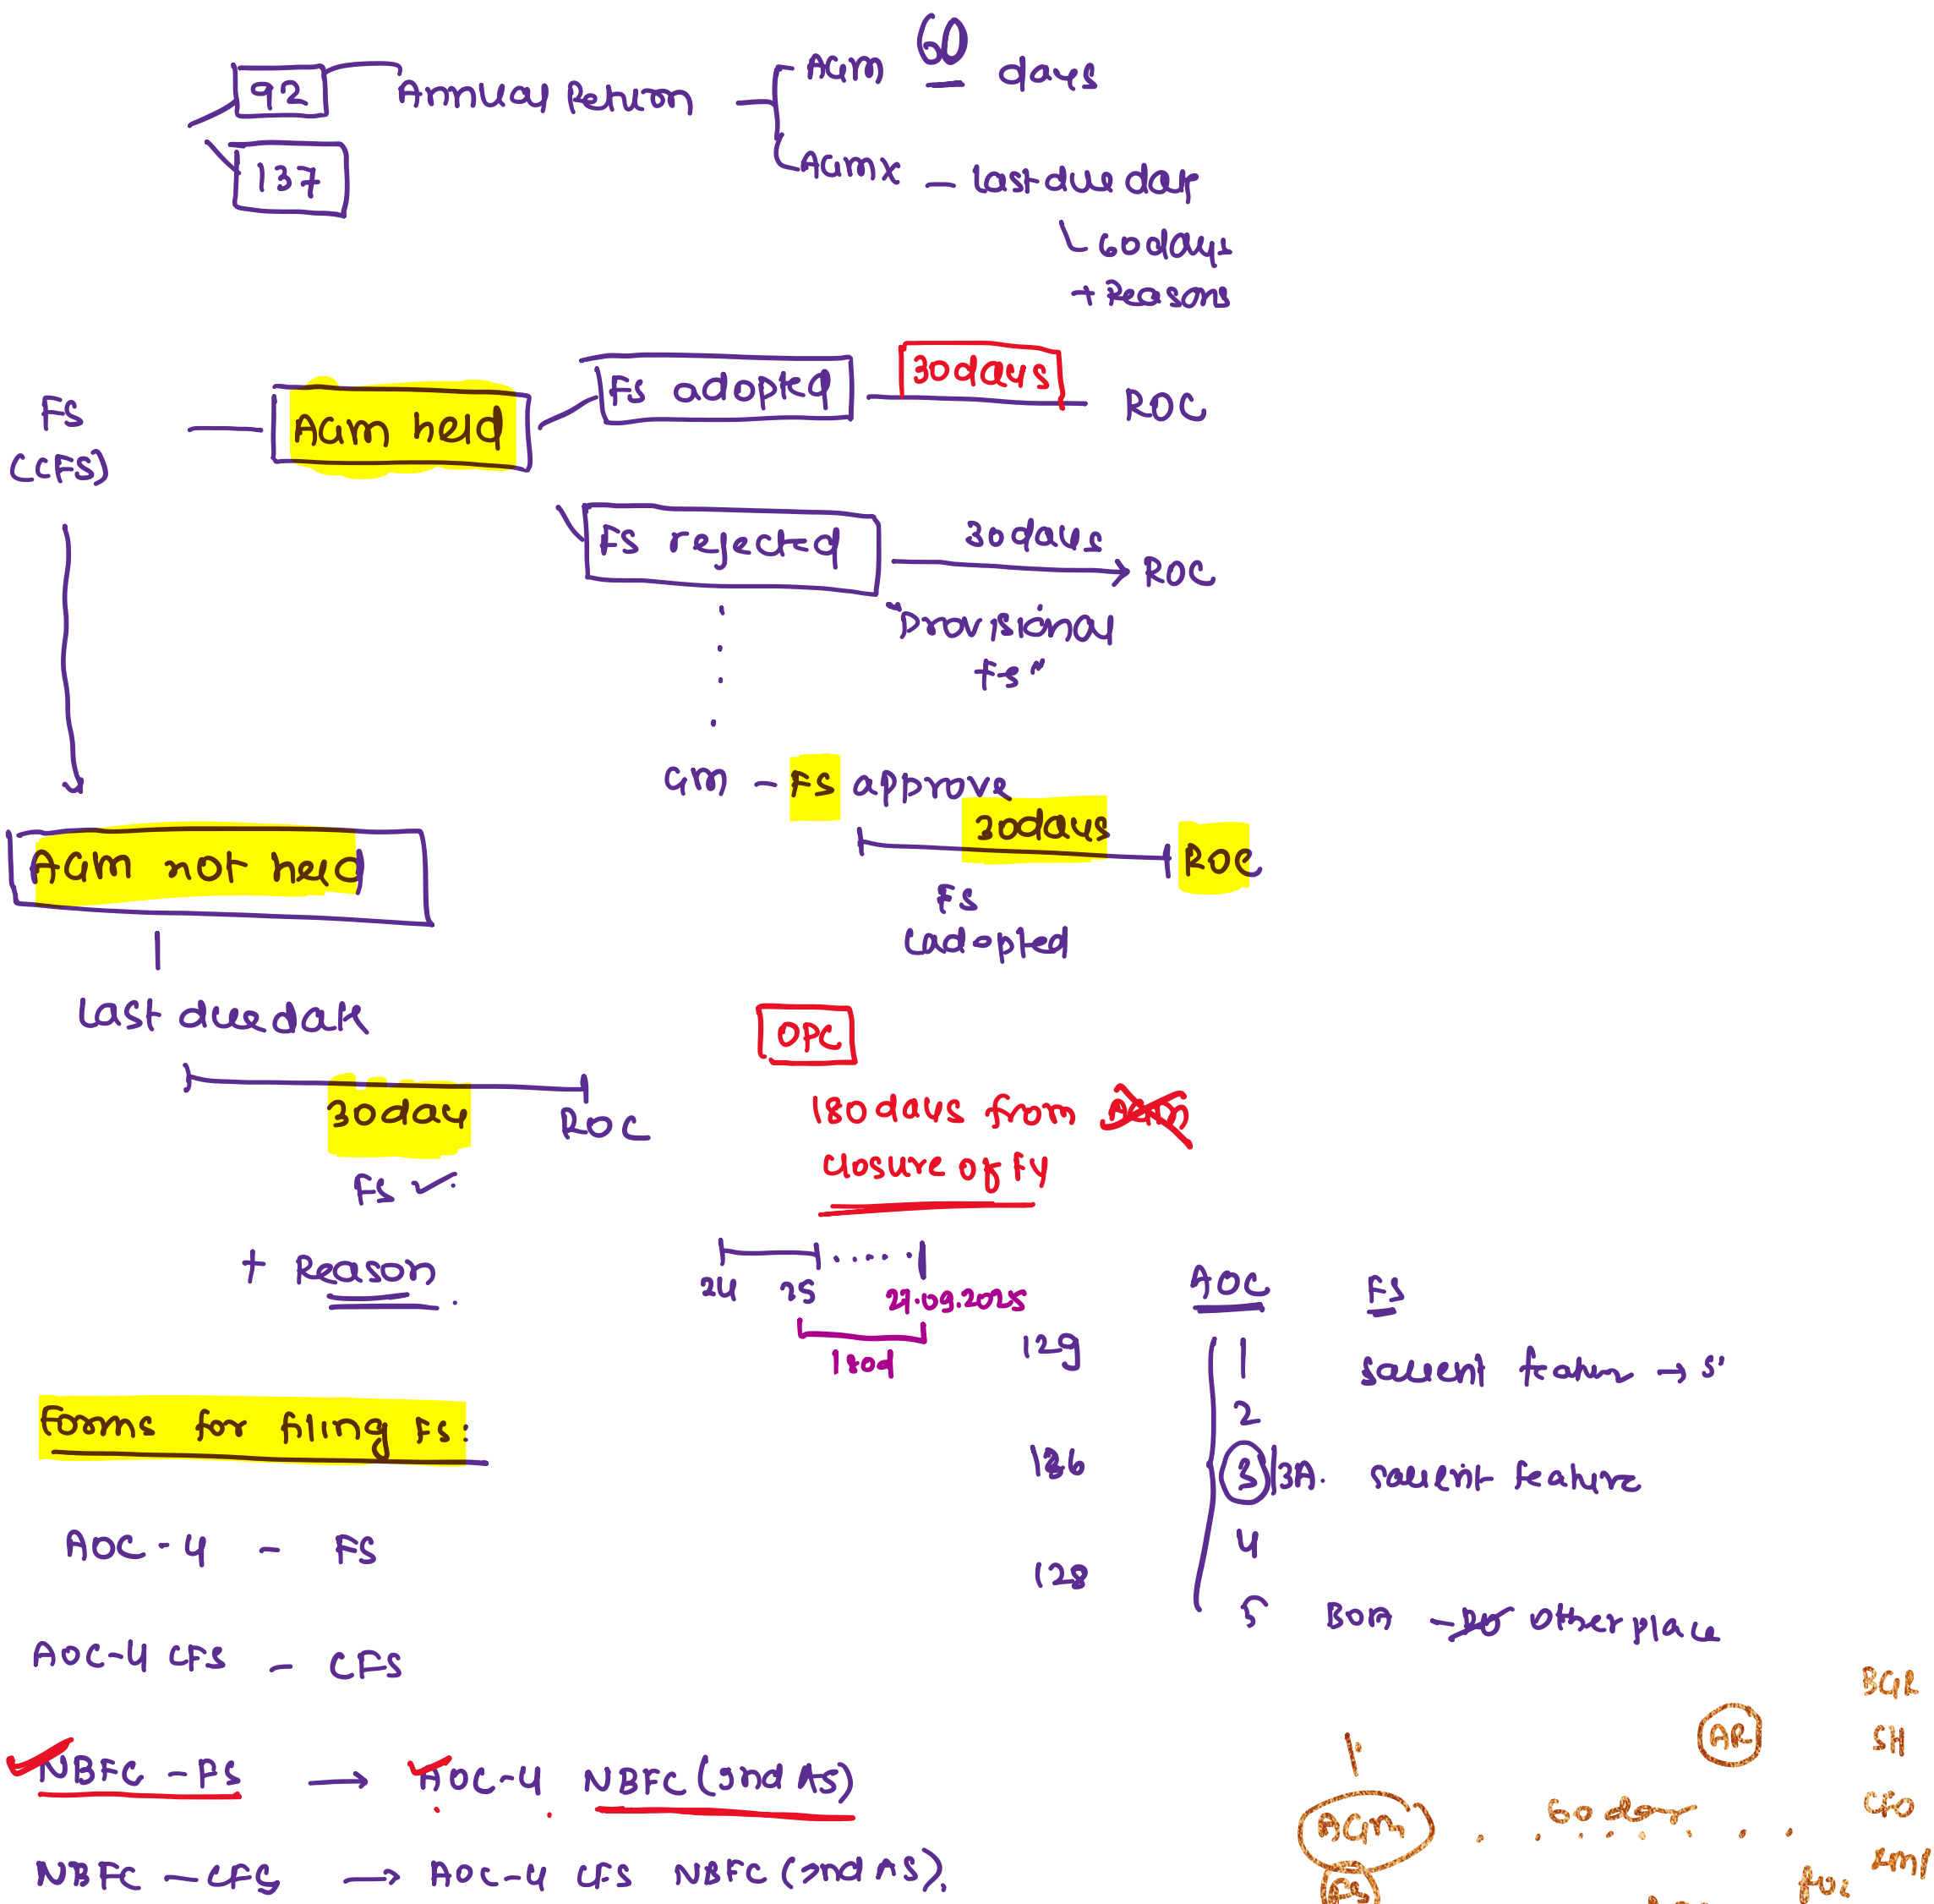 92
Annual Return
AGM 60 days
137
AGM X – last due day
60 days
+ Reasons
FS
(CFS)
AGM held
FS adopted
30 days
ROC
FS rejected
30 days
ROC
"Provisional
FS"
GM – FS approve
30 days
ROC
FS
adopted
AGM not held
last due date
30 day
ROC
FS
+ Reason.
OPC
180 days from AGM
closure of FY
24 25 27.09.2025
180d
Forms for filing FS:
AOC-4 – FS
AOC-4 CFS – CFS
NBFC – FS → AOC-4 NBFC (Ind AS)
NBFC – CFS → AOC-4 CFS NBFC (Ind AS).
AOC FS
129 1 salient feature → S'
2
136 3 | 3A. salient feature
4
128 5 BOA – RO other place
AR
BGR
SH
CFO
AGM
60 day
FS